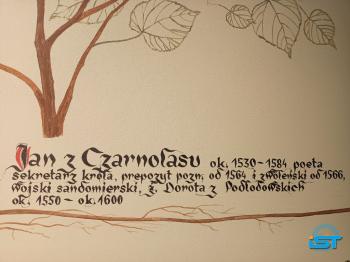 Jan z Czarnolasu ok. 1530-1584 poeta
sekretarz króla, prepozyt pozn. od 1564 i zwoleński od 1566,
wojski sandomierski, ż. Dorota z Podlodowskich
ok. 1550 - ok. 1600
iST